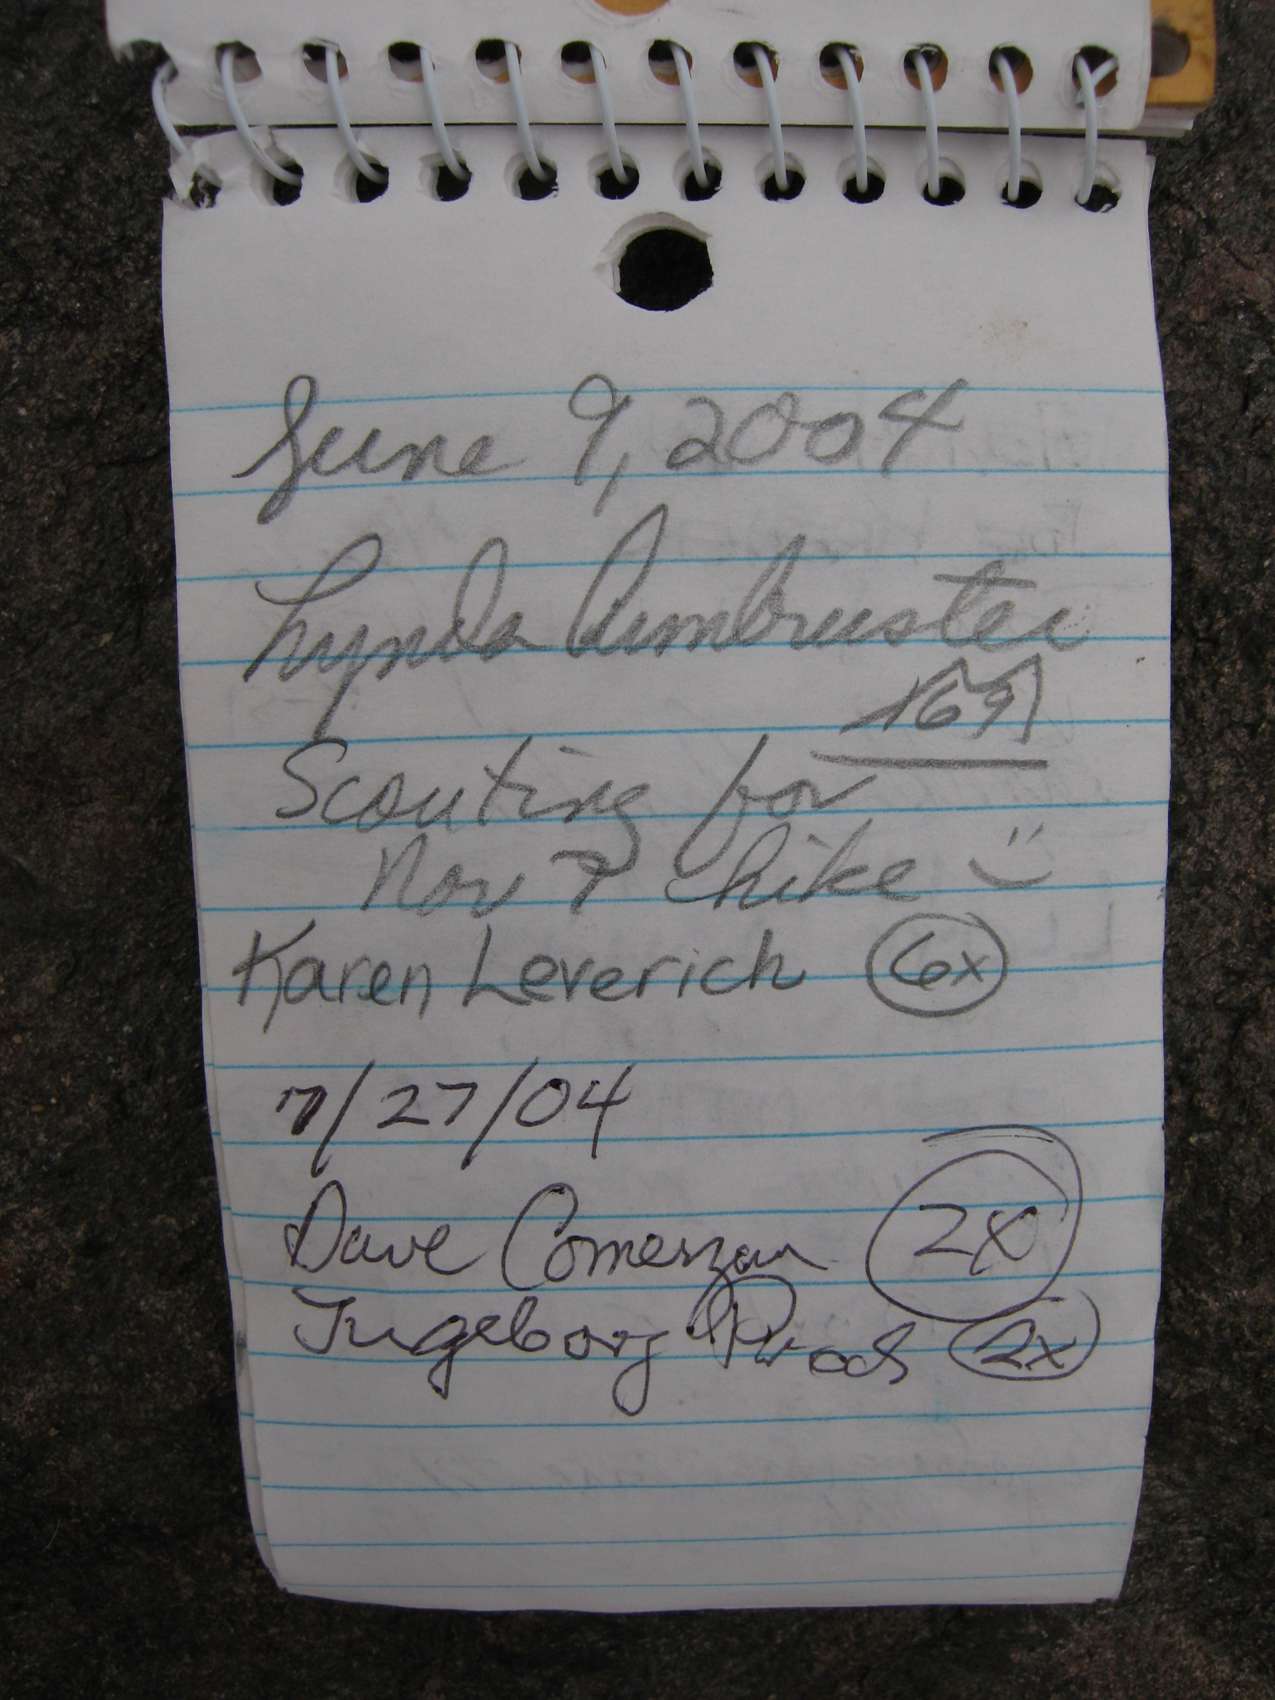 June 9, 2004
Lynda Armbruster
169
Scouting for
Nov 7 hike
Karen Leverich 6x
7/27/04
Dave Comerzan 2x
Ingeborg Prochazka 2x